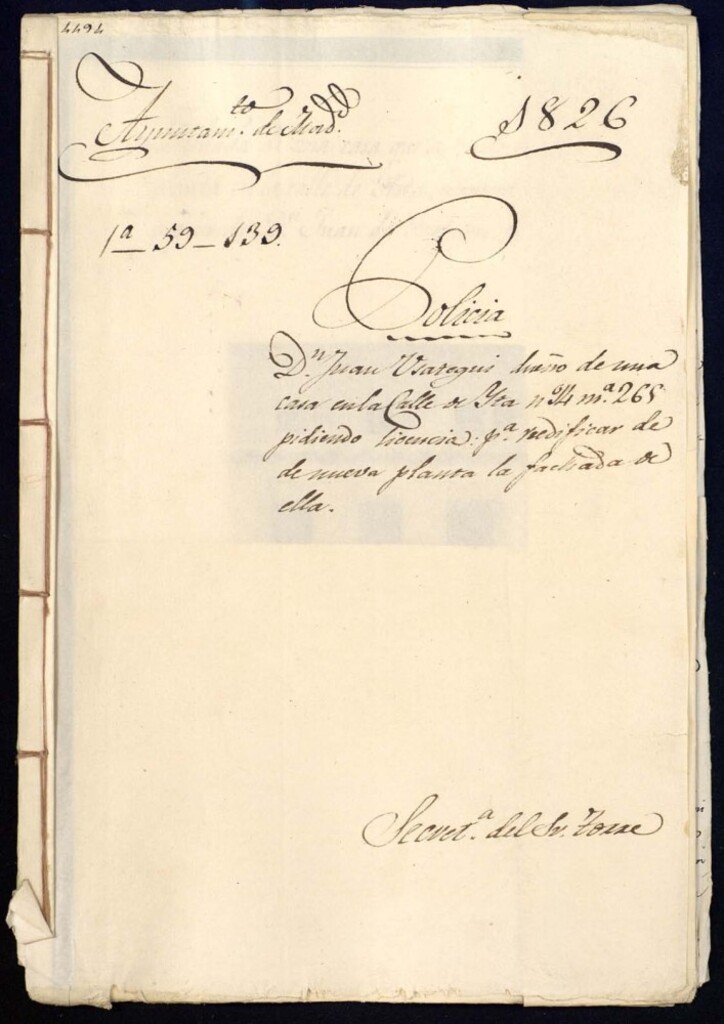 4494
Ayuntam.to de Madd.
1826
1a 59-139.
Policia
Dn. Juan dueño de una
casa en la Calle de Yta nº 14 m.a 265
pidiendo licencia pa. redificar de
de nueva planta la fachada de
ella.
Secret.a del Sr. Torre